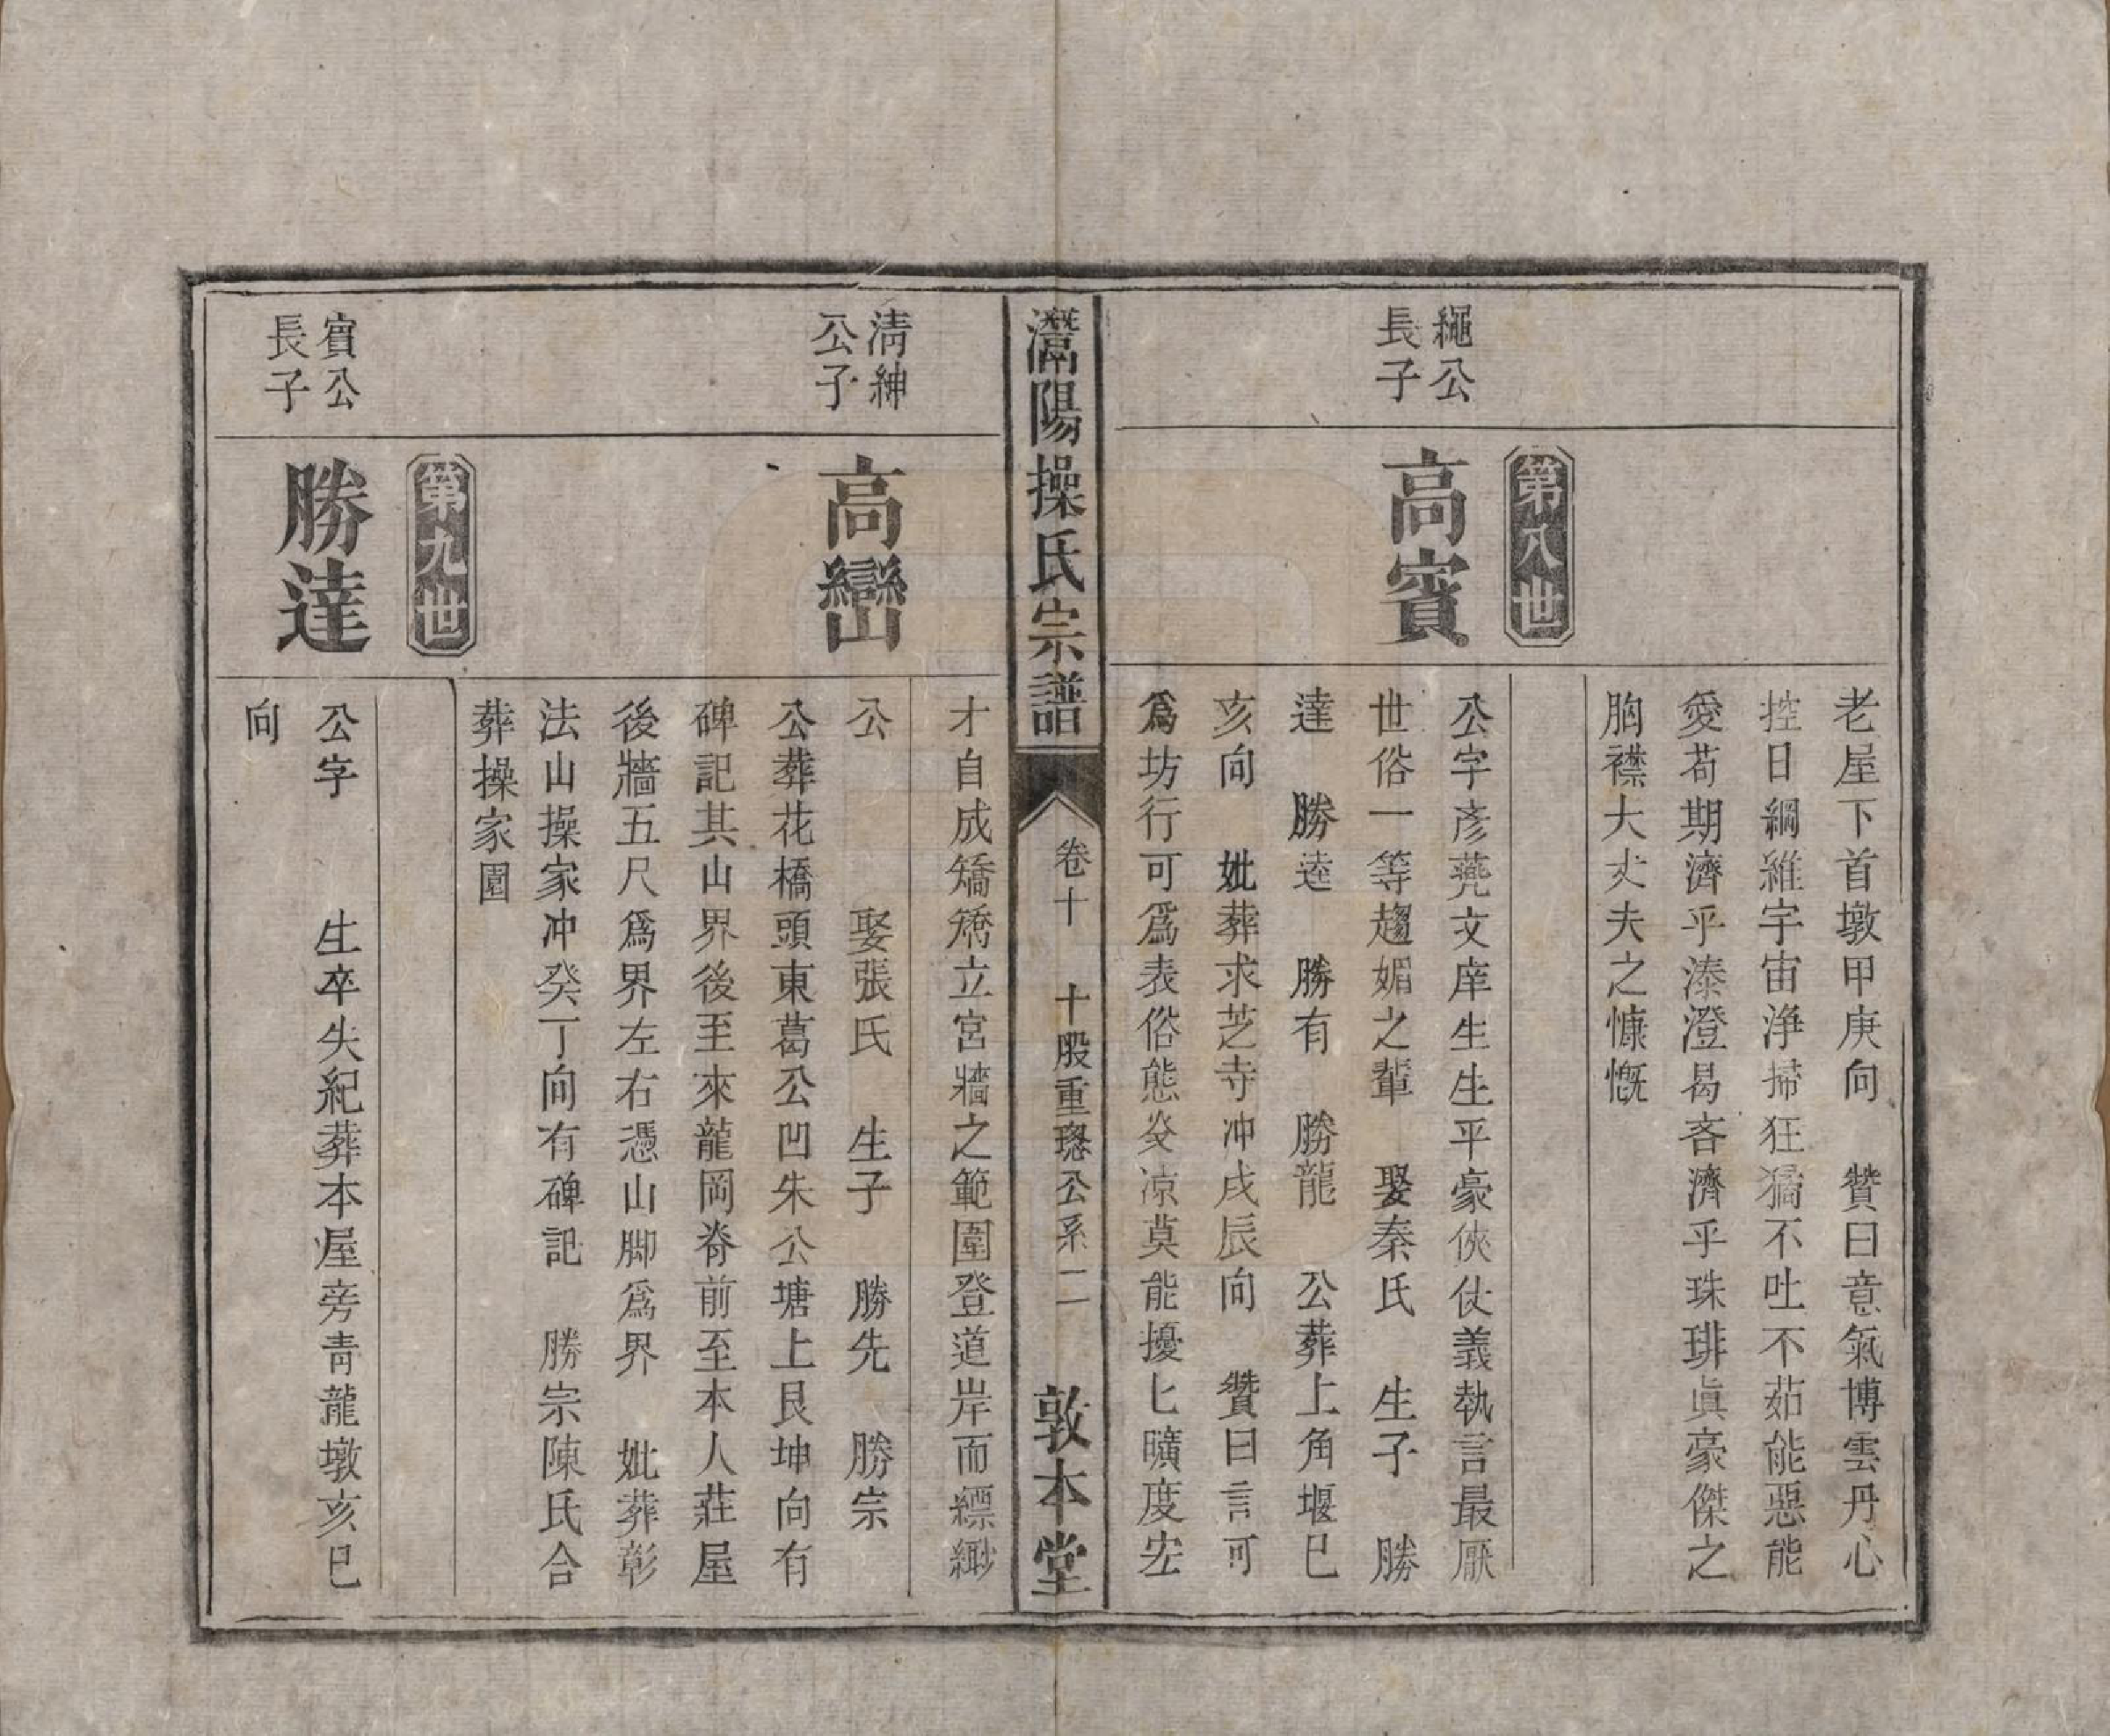 老屋下首墩甲庚向　贊曰意氣博雲丹心
控日綱維宇宙淨掃狂獝不吐不茹能惡能
愛苟期濟乎溱澄曷吝濟乎珠琲眞豪傑之
胸襟大丈夫之慷慨
第八世
繩公
長子
高賓
公字彥蕘文庠生生平豪俠仗義執言最厭
世俗一等趨媚之輩　娶秦氏　生子　勝
達　勝逵　勝有　勝龍　公葬上角堰巳
亥向　妣葬求芝寺冲戌辰向　贊曰言可
爲坊行可爲表俗態炎凉莫能擾匕曠度宏
灊陽操氏宗譜　卷十　十股重璁公系二　敦本堂
才自成矯矯立宮牆之範圍登道岸而縹緲
清紳
公子
高巒
公　　　娶張氏　生子　勝先　勝宗
公葬花橋頭東葛公凹朱公塘上艮坤向有
碑記其山界後至來龍岡脊前至本人莊屋
後牆五尺爲界左右憑山脚爲界　妣葬彰
法山操家冲癸丁向有碑記　勝宗陳氏合
葬操家園
第九世
賓公
長子
勝達
公字　　生卒失紀葬本屋旁靑龍墩亥巳
向